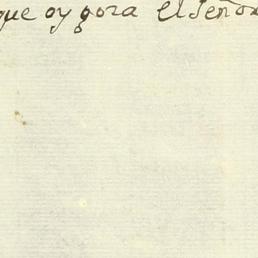 que oy gora el Señor